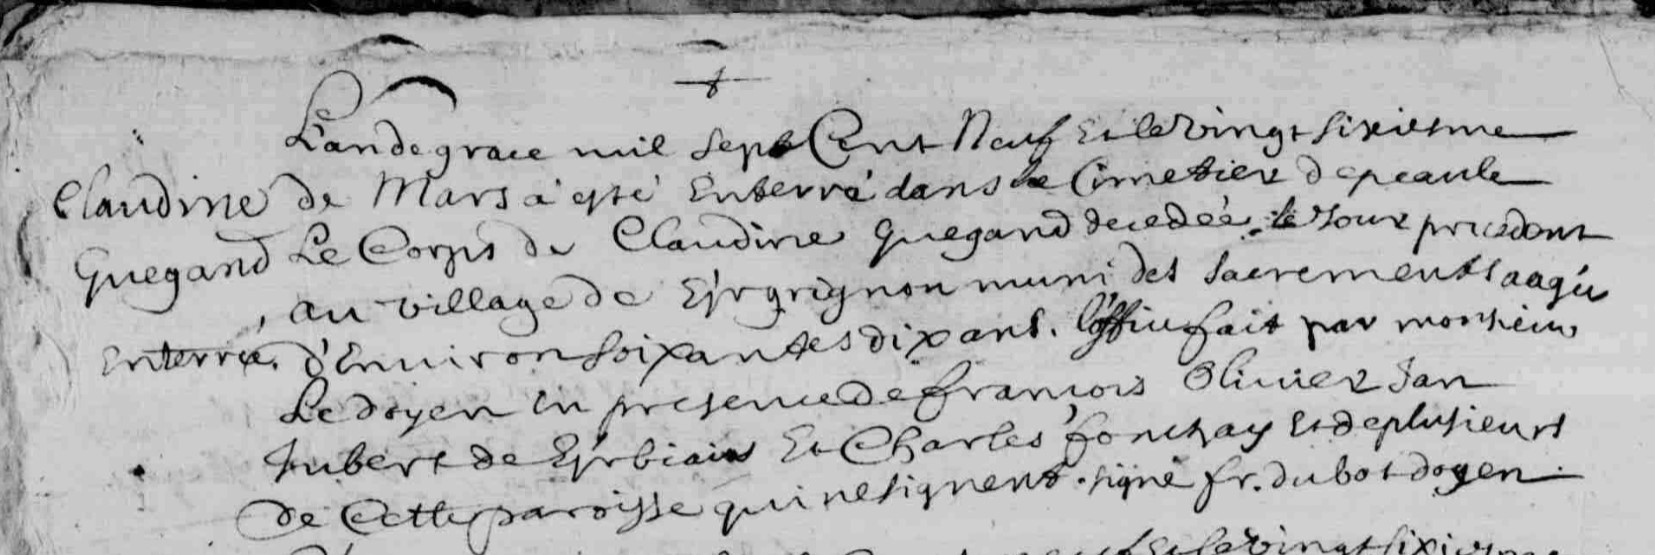 L'an de grace mil sept Cent Neuf Et le vingt sixiesme
Claudine de Mars a esté Enterré dans le Cimetier de peaule
Guegand Le Corps de Claudine Guegand decedée le Jour precedent
au village de Kgrignon muni des sacrements aagée
Enterrée. d'Environ soixantes dix ans. l'office fait par monsieur
Le doyen en presence de francois Olivier Jan
Jubert de Et Charles Et de plusieurs
de Cette paroisse qui ne signent. signé fr. dubot doyen
Et le vingt sixiesme